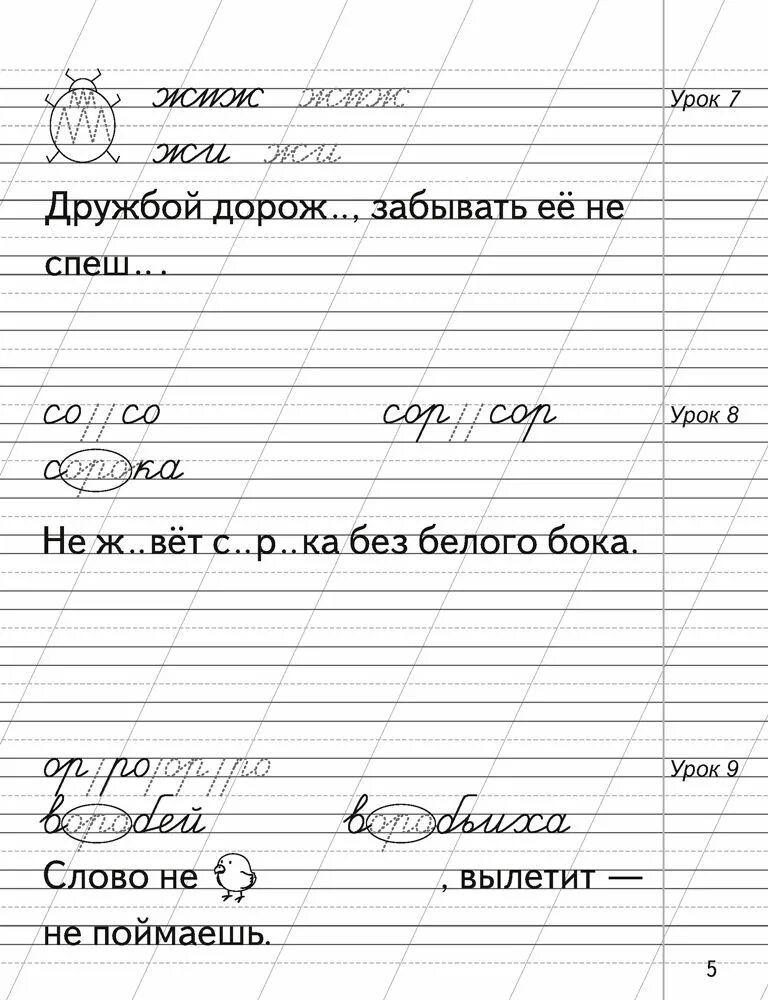 жмж жмж Урок 7
жи жи
Дружбой дорож.., забывать её не
спеш...
со со сор сор Урок 8
сорока
Не ж..вёт с..р..ка без белого бока.
ор ро ор ро Урок 9
воробей воробьиха
Слово не , вылетит —
не поймаешь.
5